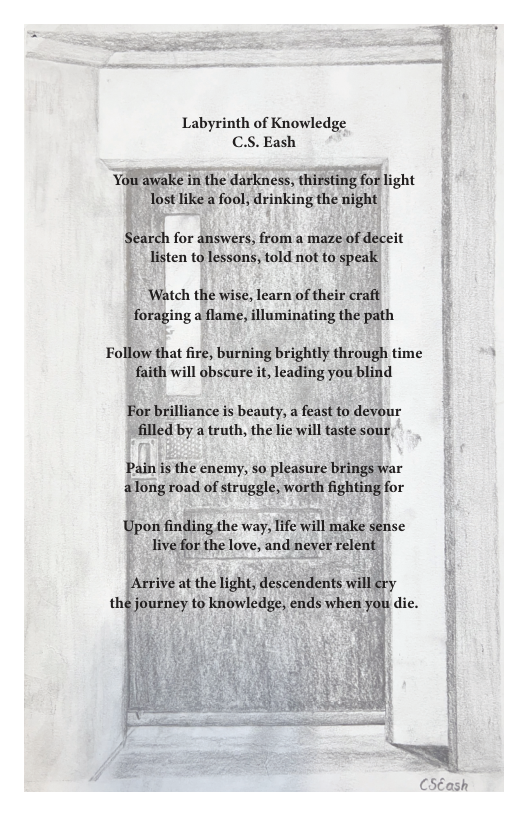 Labyrinth of Knowledge
C.S. Eash
You awake in the darkness, thirsting for light
lost like a fool, drinking the night
Search for answers, from a maze of deceit
listen to lessons, told not to speak
Watch the wise, learn of their craft
foraging a flame, illuminating the path
Follow that fire, burning brightly through time
faith will obscure it, leading you blind
For brilliance is beauty, a feast to devour
filled by a truth, the lie will taste sour
Pain is the enemy, so pleasure brings war
a long road of struggle, worth fighting for
Upon finding the way, life will make sense
live for the love, and never relent
Arrive at the light, descendents will cry
the journey to knowledge, ends when you die.
CSEash